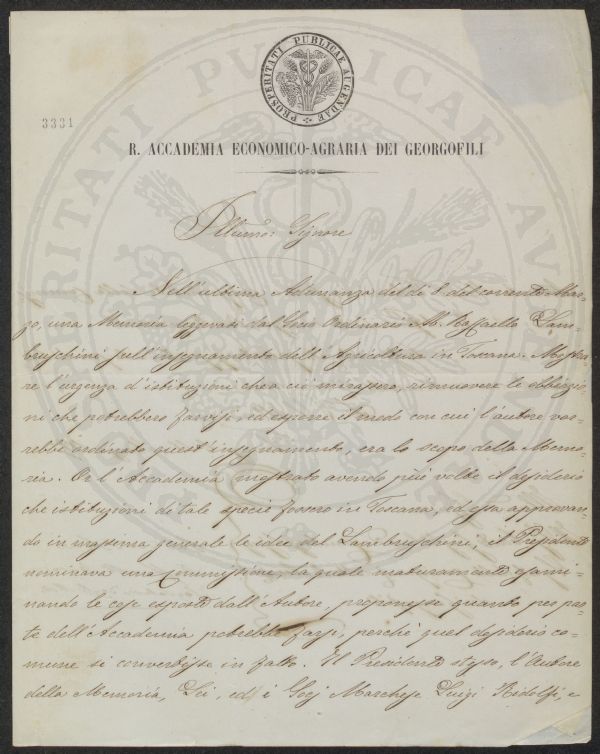 PROSPERITATI PUBLICAE AUGENDAE
3331
R. ACCADEMIA ECONOMICO-AGRARIA DEI GEORGOFILI
Illumo: Signore
Nell'ultima Adunanza del dì 8. del corrente Mar-
zo, una Memoria leggevasi dal Socio Ordinario Ab. Raffaello Lam-
bruschini sull'insegnamento dell'Agricoltura in Toscana. Mostra-
re l'urgenza d'istituzioni che a ciò mirassero, rimuovere le obbiezio-
ni che potrebbero farvisi, ed esporre il modo con cui l'autore vor-
rebbe ordinato quest'insegnamento, era lo scopo della Memo-
ria. Or l'Accademia mostrato avendo più volte il desiderio
che istituzioni di tale specie fossero in Toscana, ed essa approvan-
do in massima generale le idee del Lambruschini, il Presidente
nominava una Commissione, la quale maturamente esami-
nando le cose esposte dall'Autore, proponesse quanto per par-
te dell'Accademia potrebbe farsi, perchè quel desiderio co-
mune si convertisse in fatto. Il Presidente stesso, l'Autore
della Memoria, Lei, ed i Socj Marchese Luigi Ridolfi, e